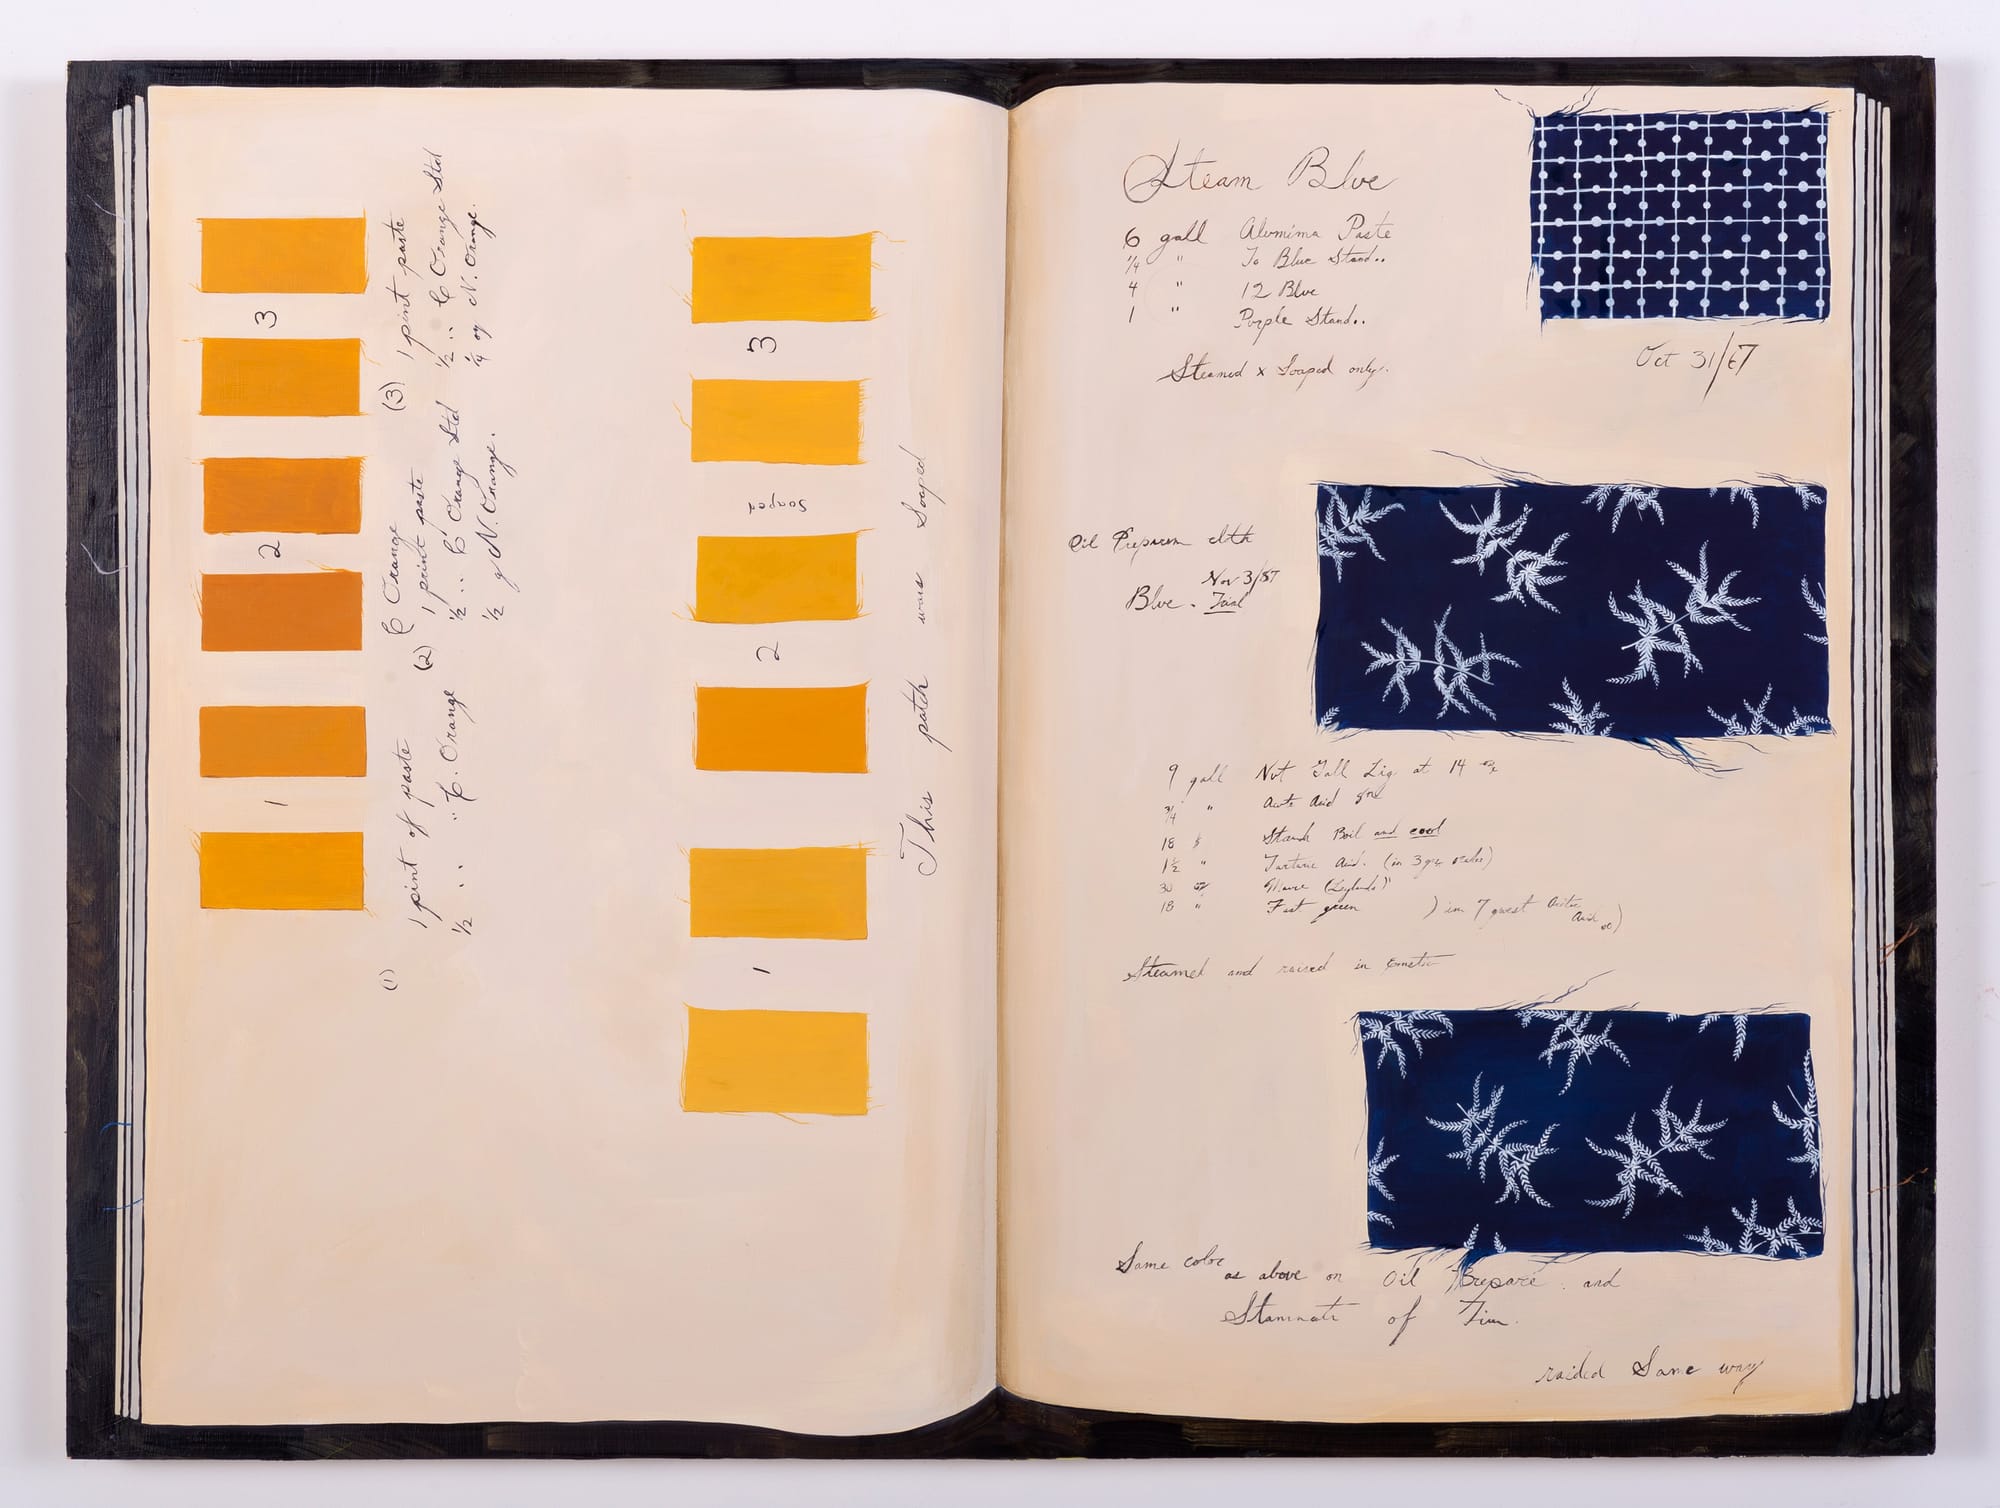 3
2
1
(1)
1 pint of paste
½ " " " C. Orange
(2) C Orange
1 print paste
½ .. C Orange Std
½ g N. Orange.
(3)
1 pint paste
½ .. C Orange Std
¼ og N. Orange.
3
Soaped
2
1
This patch was Soaped
Steam Blue
6 gall Alumima Paste
¼ " To Blue Stand..
4 " 12 Blue
1 " Purple Stand..
Steamed x Soaped only.
Oct 31/67
Oil Preparem cloth
Nov 3/87
Blue. Trial
9 gall Nut Gall Liq at 14
¾ " Acid
18 Starch Boil and cool
1½ " Acid. (in 3
30 oz
18 " Fast green ) in 7
Acid
Steamed and raised in
Same color
as above on Oil Prepare and
of
raided Same way